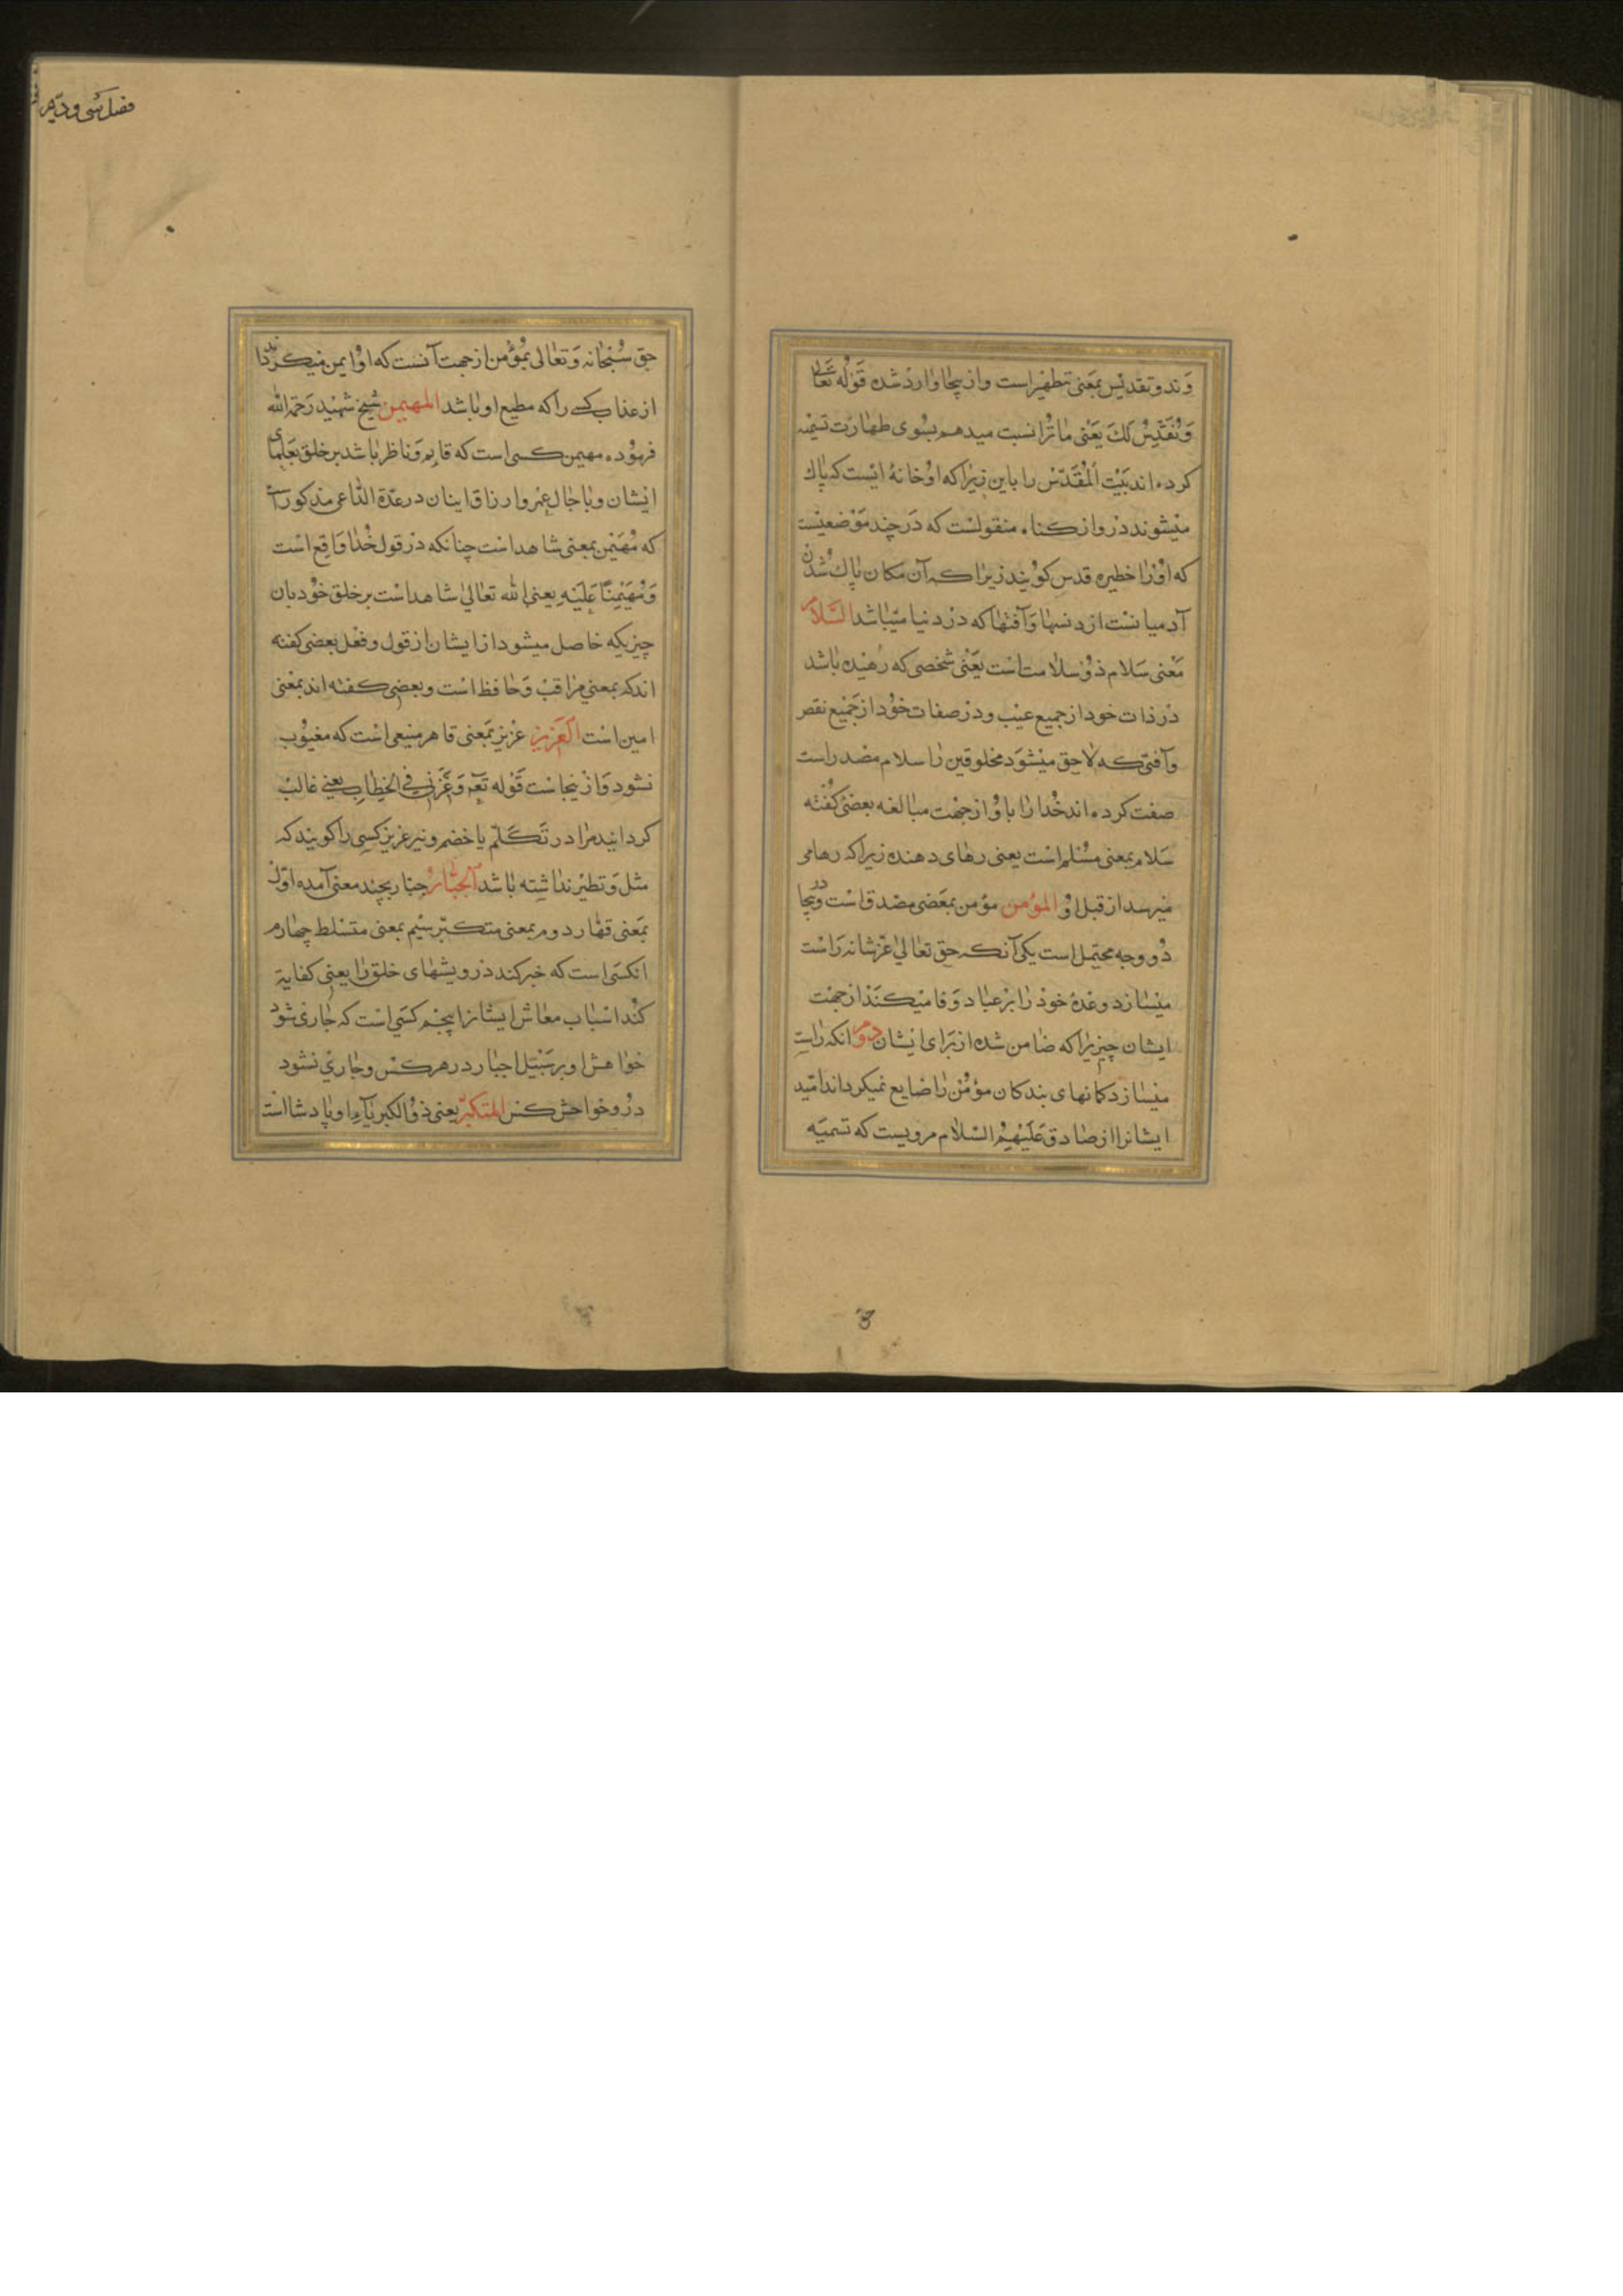 وند و تقدیس بمعنی تطهیر است و از ینجا وارد شده قوله تعالی
و نقدس لک یعنی ما ترا نسبت میدهم بسوی طهارت تسمیه
کرده اند بیت المقدس را باین زیرا که او خانهٔ ایست که پاک
میشوند درو از کناه منقولست که در چند موضعیست
که اورا خطیره قدس کویند زیرا که آن مکان پاک شدن
آدمیانست از دنسها و آفتها که در دنیا میباشد السلام
معنی سلام ذو سلامت است یعنی شخصی که رهیده باشد
در ذات خود از جمیع عیب و در صفات خود از جمیع نقص
و آفتی که لاحق میشود مخلوقین را سلام مصدر است
صفت کرده اند خدا را باو از جهت مبالغه بعضی کفته
سلام بمعنی مسلم است یعنی رهای دهنده زیرا که رهامی
میرسد از قبل او المؤمن مؤمن بمعضی مصدق است و در ینجا
دو وجه محتمل است یکی آنکه حق تعالی عز شانه راست
میسازد وعدهٔ خود را بر عباد و وفا میکند از جهت
ایشان چیزیرا که ضامن شده از برای ایشان دوم انکه راست
میسازد کمانهای بندکان مؤمن را ضایع نمیکرداند امید
ایشانرا از صادق علیهم السلام مرویست که تسمیه
3
فصل سی و دیم
حق سبحانه و تعالی بمؤمن از جهت آنست که او ایمن میکرداند
از عذاب کسی را که مطیع او باشد المهیمن شیخ شهید رحمة الله
فرموده مهیمن کسی است که قایم و ناظر باشد بر خلق بعملهای
ایشان و باجال عمر و ارزاق اینان در عدة الداعی مذکور است
که مهیمن بمعنی شاهد است چنانکه در قول خدا واقع است
و مهیمنا علیه یعنی الله تعالی شاهد است بر خلق خود بان
چیزیکه حاصل میشود از ایشان از قول و فعل بعضی کفته
اند که بمعنی مراقب و حافظ است و بعضی کفته اند بمعنی
امین است العزیز عزیز بمعنی قاهر منیعی است که مغیوب
نشود و از ینجاست قوله تع و عزنی فی الخطاب یعنی غالب
کردانید مرا در تکلم یا خضم و نیر عزیز کسی را کویند که
مثل و تطیر نداشته باشد الجبار جبار بچند معنی آمده اول
بمعنی قهار دوم بمعنی متکبر سیم بمعنی متسلط چهارم
انکسی است که خبر کند درویشهای خلق را یعنی کفایة
کند اسباب معاش ایشانرا پنجم کسی است که جاری شود
خواهش او بر سبیل اجبار در هر کس و جاری نشود
درو خواحش کس المتکبر یعنی ذو الکبریآء او پادشااست